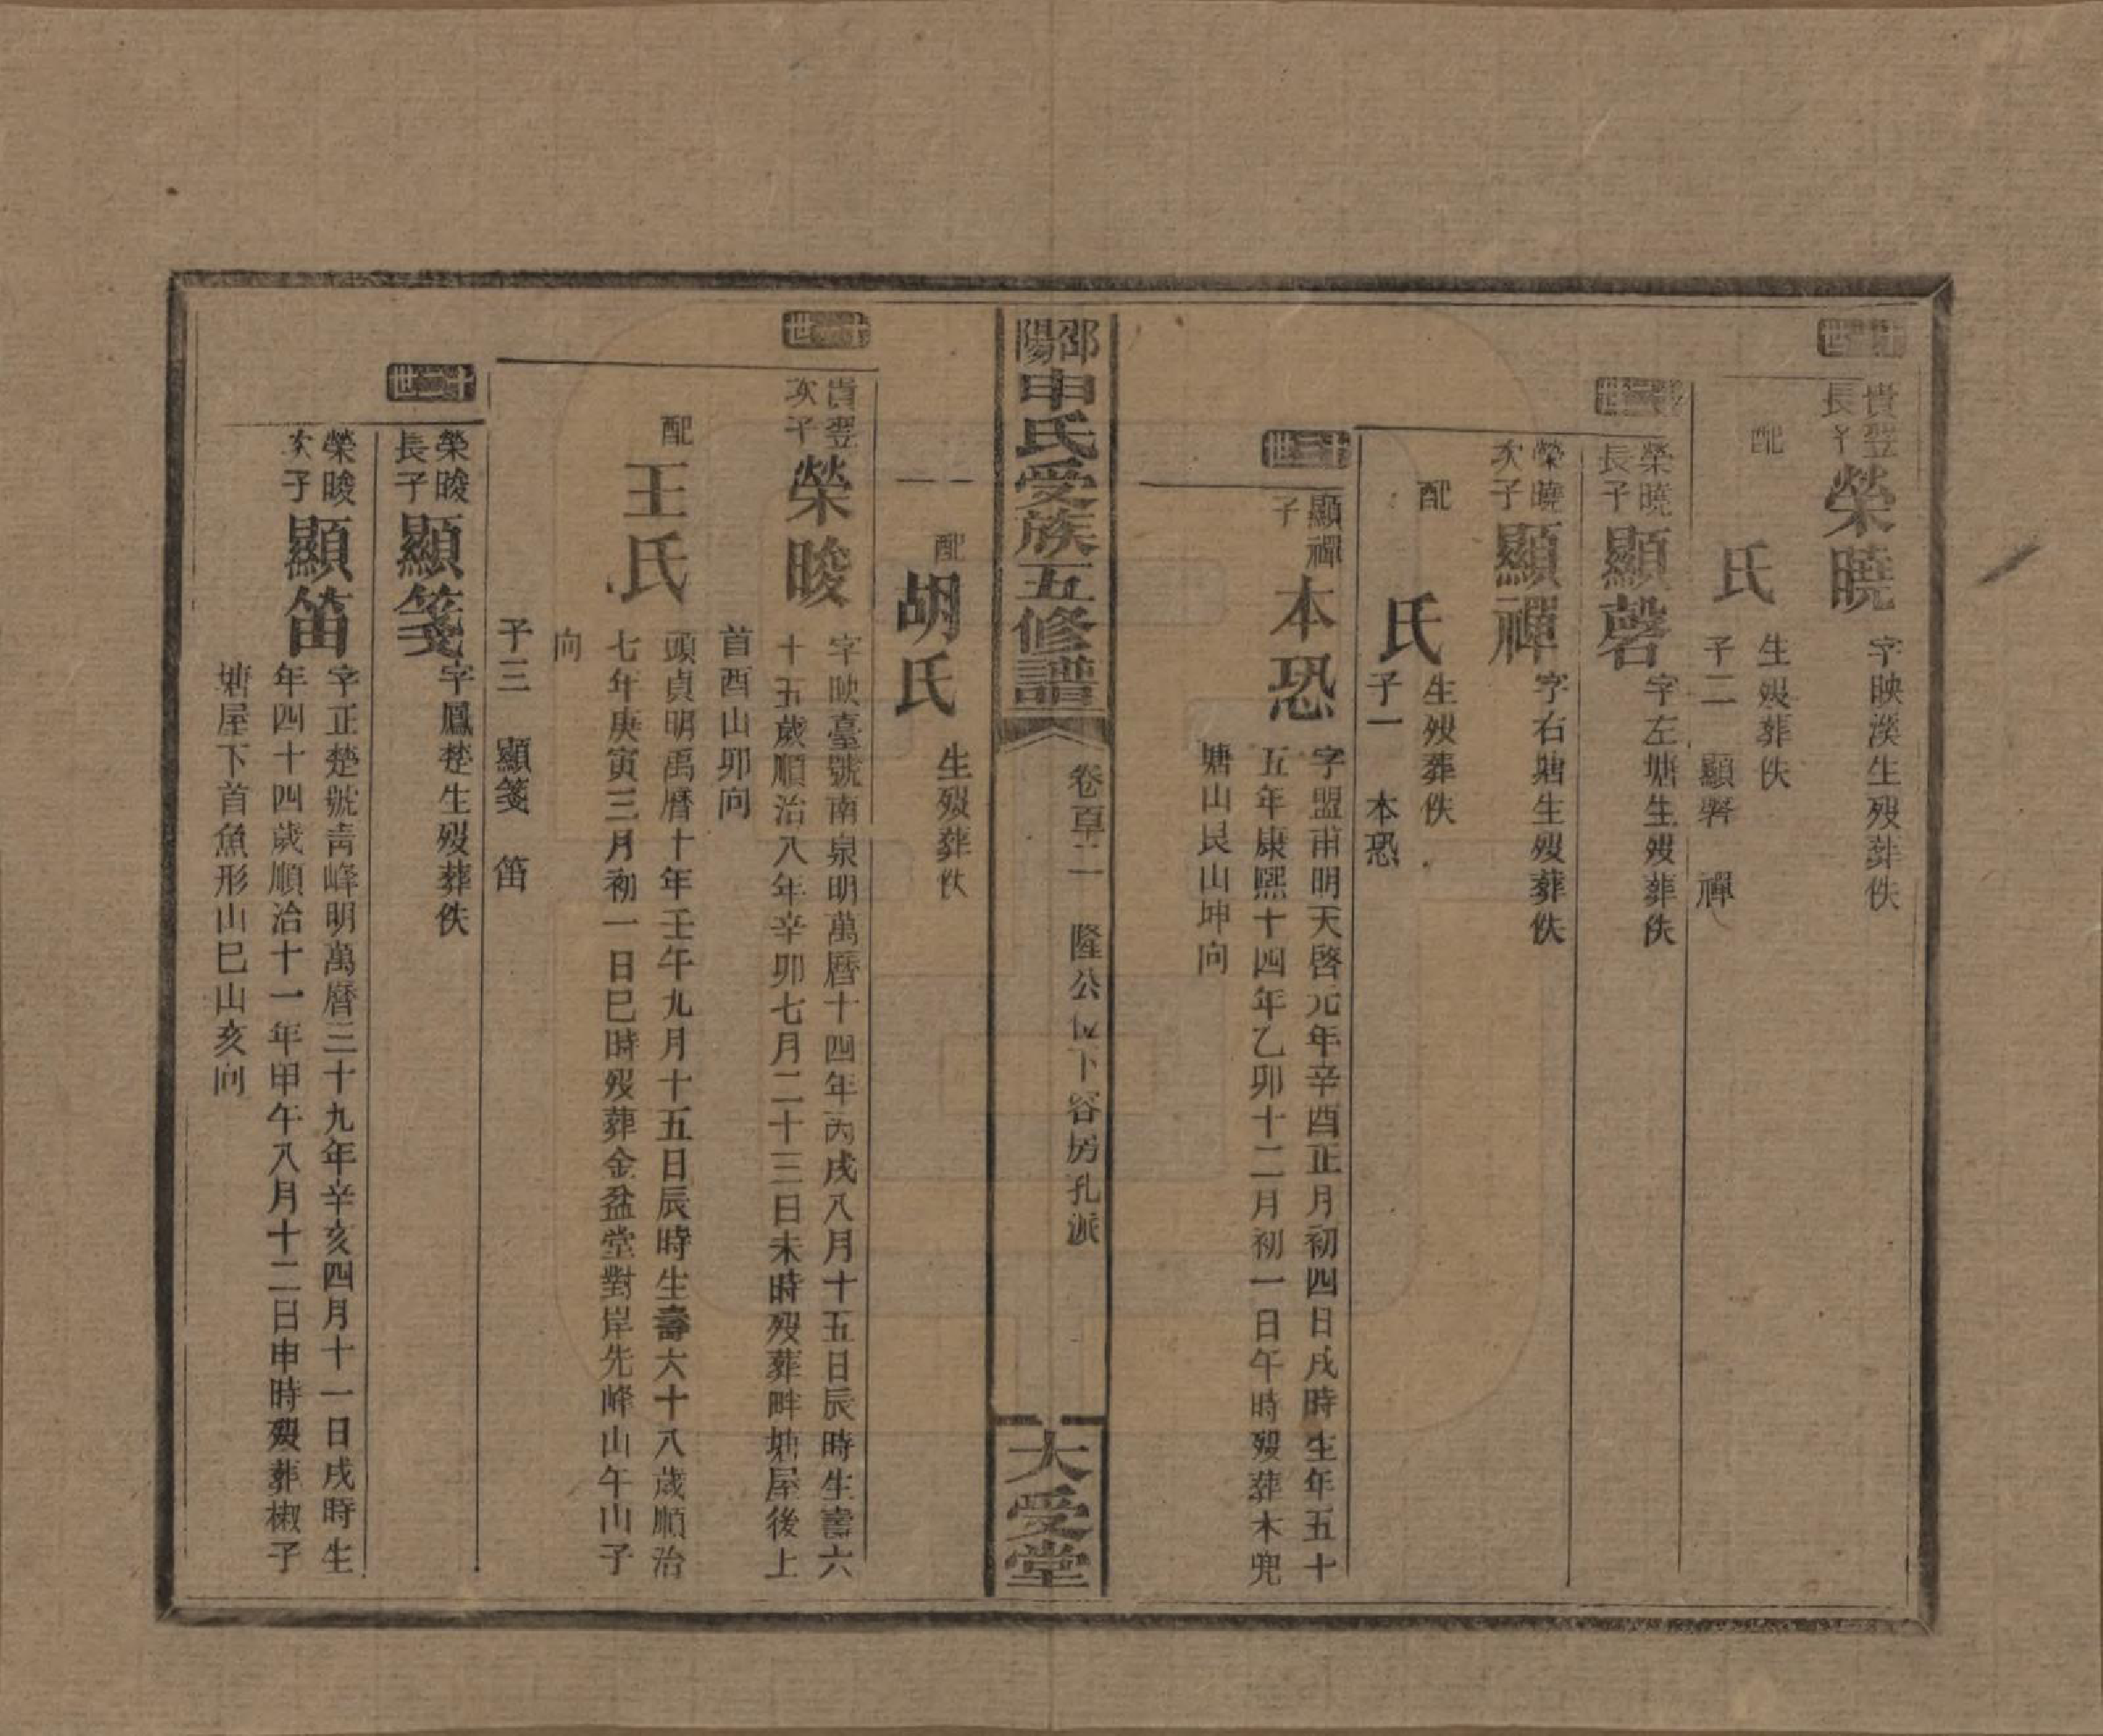 貴翌
長子
榮曉
字映溪生歿葬佚
配
氏
生歿葬佚
子二 顯磬 禪
榮曉
長子
顯磬
字左塘生歿葬佚
榮曉
次子
顯禪
字右塘生歿葬佚
配
氏
生歿葬佚
子一 本恐
十三世
顯禪
子
本恐
字盟甫明天啓元年辛酉正月初四日戌時生年五十
五年康熙十四年乙卯十二月初一日午時歿葬木兜
塘山艮山坤向
邵陽申氏受族五修譜
隆公 下容房孔派
大受堂
配
胡氏
生歿葬佚
世
貴翌
次子
榮晙
字映臺號南泉明萬曆十四年丙戌八月十五日辰時生壽六
十五歲順治八年辛卯七月二十三日未時歿葬畔塘屋後上
首酉山卯向
配
王氏
頭貞明萬曆十年壬午九月十五日辰時生壽六十八歲順治
七年庚寅三月初一日巳時歿葬金盆堂對岸先峰山午山子
向
子三 顯箋 笛
十二世
榮晙
長子
顯箋
字鳳楚生歿葬佚
榮晙
次子
顯笛
字正楚號靑峰明萬曆三十九年辛亥四月十一日戌時生
年四十四歲順治十一年甲午八月十二日申時歿葬椒子
塘屋下首魚形山巳山亥向